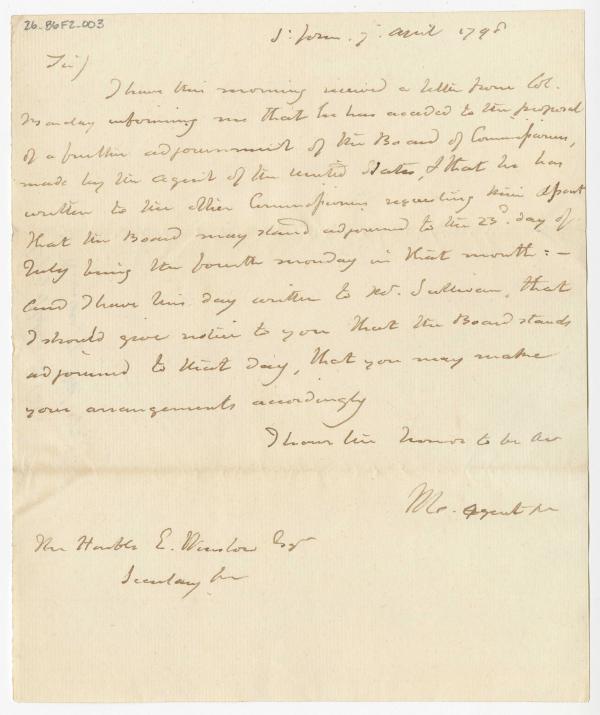 26-B6F2-003
St John. 7. April 1798
Sir/
I have this morning received a letter from Col.
Barclay informing me that he has acceded to the proposal
of a further adjournment of the Board of Commissioners,
made by the Agent of the United States, & that he has
written to the other Commissioners requesting their assent
that the Board may stand adjourned to the 23d. day of
July being the fourth monday in that month: –
And I have this day written to Mr. Sullivan, that
I should give notice to you that the Board stands
adjourned to that day, that you may make
your arrangements accordingly
I have the honor to be &c
Agent &c
The Honble E. Winslow Esqr
Secretary &c